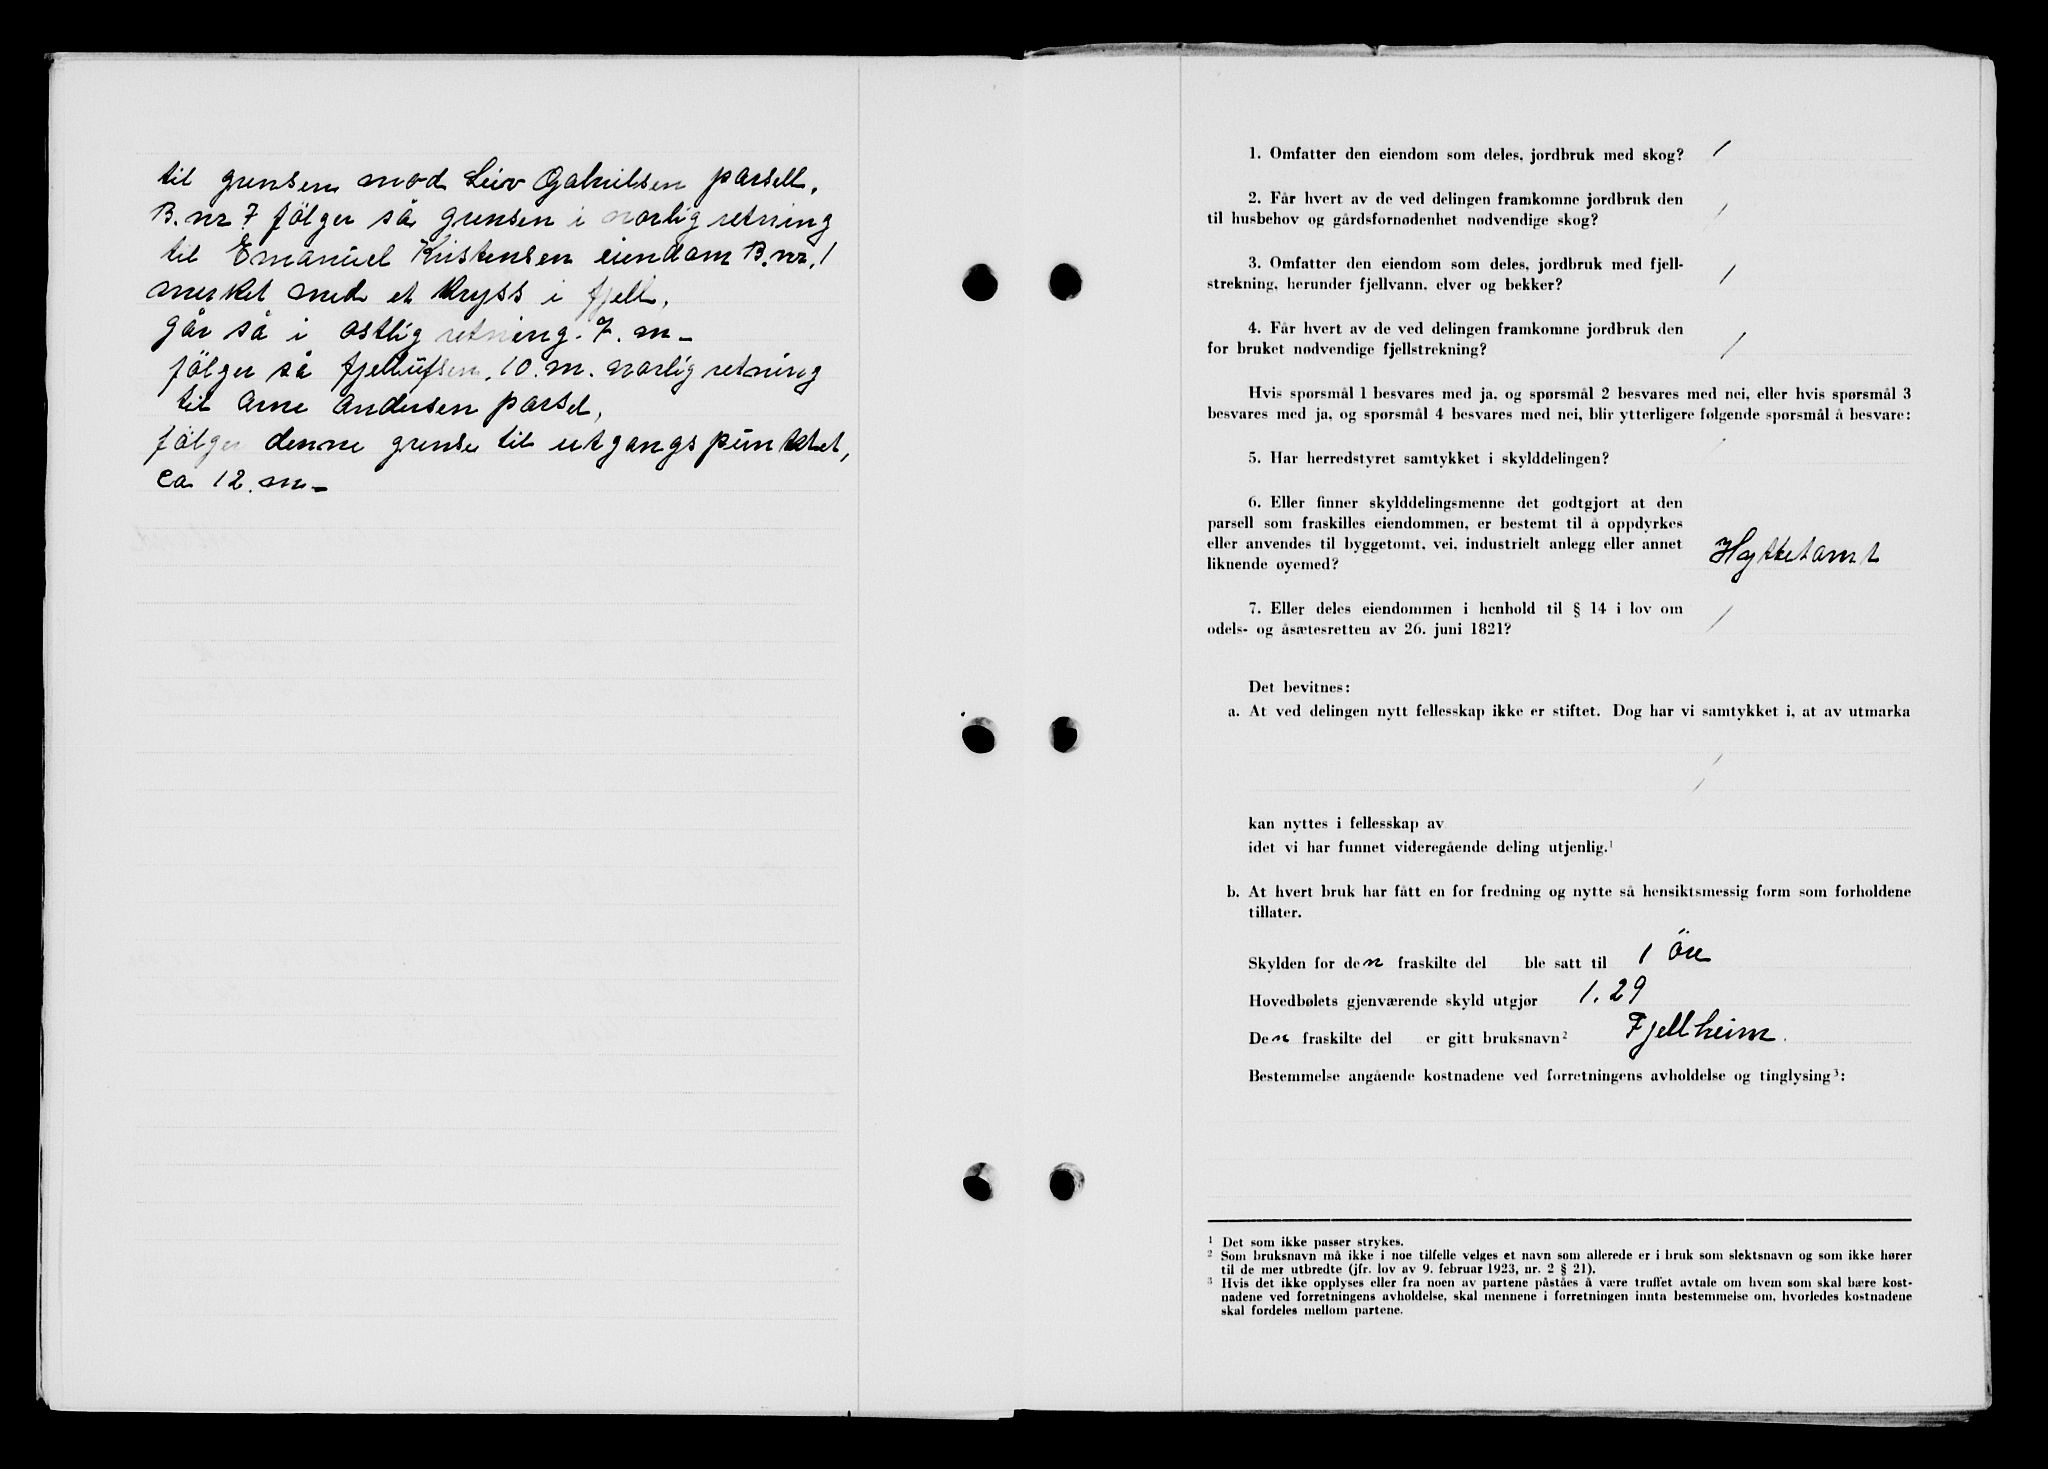 til grensen mod Leiv Gabrielsen parsell.
B.nr 7 følger så grensen i norlig retning
til Emanuel Kristensen eiendom B.nr. 1
merket med et kryss i fjell.
går så i østlig retning. 7. m-
følger så fjellufsen. 10. m. norlig retning
til Arne Andersen parsel,
følger denne grense til utgangspunktet,
ca 12. m-
1. Omfatter den eiendom som deles, jordbruk med skog? /
2. Får hvert av de ved delingen framkomne jordbruk den
til husbehov og gårdsfornødenhet nødvendige skog? /
3. Omfatter den eiendom som deles, jordbruk med fjell-
strekning, herunder fjellvann, elver og bekker? /
4. Får hvert av de ved delingen framkomne jordbruk den
for bruket nødvendige fjellstrekning? /
Hvis spørsmål 1 besvares med ja, og spørsmål 2 besvares med nei, eller hvis spørsmål 3
besvares med ja, og spørsmål 4 besvares med nei, blir ytterligere følgende spørsmål å besvare:
5. Har herredstyret samtykket i skylddelingen?
6. Eller finner skylddelingsmenne det godtgjort at den
parsell som fraskilles eiendommen, er bestemt til å oppdyrkes
eller anvendes til byggetomt, vei, industrielt anlegg eller annet
liknende øyemed? Hyttetomt
7. Eller deles eiendommen i henhold til § 14 i lov om
odels- og åsætesretten av 26. juni 1821? /
Det bevitnes:
a. At ved delingen nytt fellesskap ikke er stiftet. Dog har vi samtykket i, at av utmarka
kan nyttes i fellesskap av
idet vi har funnet videregående deling utjenlig.¹
b. At hvert bruk har fått en for fredning og nytte så hensiktsmessig form som forholdene
tillater.
Skylden for den fraskilte del ble satt til 1 öre
Hovedbølets gjenværende skyld utgjør 1.29
Den fraskilte del er gitt bruksnavn² Fjellheim.
Bestemmelse angående kostnadene ved forretningens avholdelse og tinglysing³:
¹ Det som ikke passer strykes.
² Som bruksnavn må ikke i noe tilfelle velges et navn som allerede er i bruk som slektsnavn og som ikke hører
til de mer utbredte (jfr. lov av 9. februar 1923, nr. 2 § 21).
³ Hvis det ikke opplyses eller fra noen av partene påståes å være truffet avtale om hvem som skal bære kost-
nadene ved forretningens avholdelse, skal mennene i forretningen innta bestemmelse om, hvorledes kostnadene
skal fordeles mellom partene.